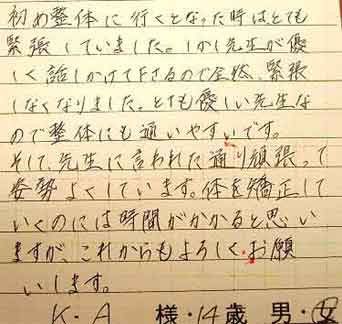 初め整体に行くとなった時はとても
緊張していました。しかし先生が優
しく話しかけて下さるので全然、緊張
しなくなりました。とても優しい先生な
ので整体にも通いやすいです。
そして、先生に言われた通り頑張って
姿勢よくしています。体を矯正して
いくのには時間がかかると思い
ますが、これからもよろしくお願
いします。
K・A 様・14歳 男・女